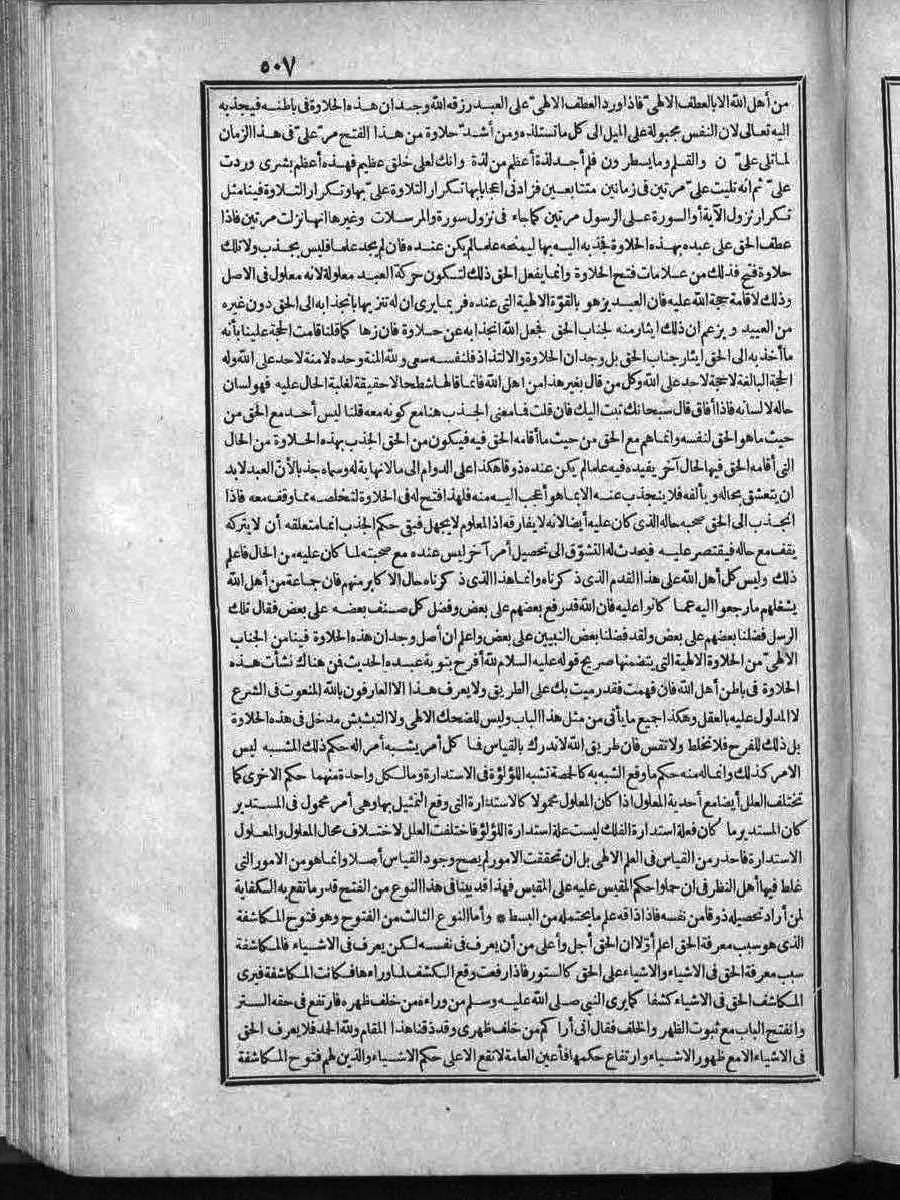 ٥٠٧
من أهل الله الا بالعطف الالهىّ فاذا ورد العطف الالهىّ على العبد رزقه الله وجدان هذه الحلاوة فى باطنه فيجذبه
اليه تعالى لان النفس مجبولة على الميل الى كل ما تستلذه ومن أشدّ حلاوة من هذا الفتح مرّ علىّ فى هذا الزمان
لما تلى علىّ ن والقلم وما يسطرون فلم أجد لذة أعظم من لذة وانك لعلى خلق عظيم فهذه أعظم بشرى وردت
علىّ ثم انه تليت علىّ مرّتين فى زمانين متتابعين فزادنى اعجابا بها تكرار التلاوة علىّ بها وتكرار التلاوة فينا مثل
تكرار نزول الآية أو السورة على الرسول مرّتين كما جاء فى نزول سورة والمرسلات وغيرها انها نزلت مرّتين فاذا
عطف الحق على عبده بهذه الحلاوة فجذبه اليه بها ليمنحه علما لم يكن عنده فان لم يجد علما فليس بجذب ولا تلك
حلاوة فتح فذلك من علامات فتح الحلاوة وانما يفعل الحق ذلك لتكون حركة العبد معلولة لانه معلول فى الاصل
وذلك لاقامة حجة الله عليه فان العبد يزهو بالقوّة الالهية التى عنده فربما يرى ان له تنزيها بانجذابه الى الحق دون غيره
من العبيد ويزعم ان ذلك ايثار منه لجناب الحق فجعل الله انجذابه عن حلاوة فان زها كما قلنا قامت الحجة علينا بأنه
ما أخذ به الى الحق ايثار جناب الحق بل وجدان الحلاوة والالتذاذ فلنفسه سعى ولله المنة وحده لا منة لاحد على الله وله
الحجة البالغة لا حجة لاحد على الله وكل من قال بغير هذا من اهل الله فانما قالها شطحا لا حقيقة لغلبة الحال عليه فهو لسان
حاله لا لسانه فاذا أفاق قال سبحانك تبت اليك فان قلت فما معنى الجذب هنا مع كونه معه قلنا ليس أحد مع الحق من
حيث ما هو الحق لنفسه وانما هم مع الحق من حيث ما أقامه الحق فيه فيكون من الحق الجذب بهذه الحلاوة من الحال
التى أقامه الحق فيها لحال آخر يفيده فيه علما لم يكن عنده ذوقا هكذا على الدوام الى ما لا نهاية له وسماه جذبا لأنّ العبد لابد
ان يتعشق بحاله ويألفه فلا ينجذب عنه الا بما هو أعجب اليه منه فلهذا فتح له فى الحلاوة لتخلصه مما وقف معه فاذا
انجذب الى الحق صحبه حاله الذى كان عليه أيضا لانه لا يفارقه اذ المعلوم لا يجهل فبقى حكم الجذب انما متعلقه أن لا يتركه
يقف مع حاله فيقتصر عليه فيحدث له التشوّق الى تحصيل أمر آخر ليس عنده مع صحبته لما كان عليه من الحال فاعلم
ذلك وليس كل أهل الله على هذا القدم الذى ذكرناه وانما هذا الذى ذكرناه حال الاكابر منهم فان جماعة من أهل الله
يشغلهم ما رجعوا اليه عما كانوا عليه فان الله قد رفع بعضهم على بعض وفضل كل صنف بعضه على بعض فقال تلك
الرسل فضلنا بعضهم على بعض ولقد فضلنا بعض النبيين على بعض واعلم ان أصل وجدان هذه الحلاوة فينا من الجناب
الالهىّ من الحلاوة الالهية التى يتضمنها صريح قوله عليه السلام لله أفرح بتوبة عبده الحديث فمن هناك نشأت هذه
الحلاوة فى باطن أهل الله فان فهمت فقد رميت بك على الطريق ولا يعرف هذا الا العارفون بالله المنعوت فى الشرع
لا المدلول عليه بالعقل وهكذا جميع ما يأتى من مثل هذا الباب وليس للضحك الالهى ولا التبشبش مدخل فى هذه الحلاوة
بل ذلك للفرح فلا تخلط ولا تقس فان طريق الله لا تدرك بالقياس فما كل أمر يشبه أمرا له حكم ذلك المشبه ليس
الامر كذلك وانما له منه حكم ما وقع الشبه به كالحمصة تشبه اللؤلؤة فى الاستدارة وما لكل واحدة منهما حكم الاخرى كما
تختلف العلل أيضا مع أحدية المعلول اذا كان المعلول محمولا كالاستدارة التى وقع التمثيل بها وهى أمر محمول فى المستدير
كان المستدير ما كان فعلة استدارة الفلك ليست علة استدارة اللؤلؤ فاختلفت العلل لاختلاف محال المعلول والمعلول
الاستدارة فاحذر من القياس فى العلم الالهى بل ان تحققت الامور لم يصح وجود القياس أصلا وانما هو من الامور التى
غلط فيها أهل النظر فى ان حملوا حكم المقيس عليه على المقيس فهذا قد بينا فى هذا النوع من الفتح قدر ما تقع به الكفاية
لمن أراد تحصيله ذوقا من نفسه فاذا ذاقه علم ما يحتمله من البسط * وأما النوع الثالث من الفتوح وهو فتوح المكاشفة
الذى هو سبب معرفة الحق اعلم أوّلا ان الحق أجل وأعلى من أن يعرف فى نفسه لكن يعرف فى الاشياء فالمكاشفة
سبب معرفة الحق فى الاشياء والاشياء على الحق كالستور فاذا رفعت وقع الكشف لما وراءها فكانت المكاشفة فيرى
المكاشف الحق فى الاشياء كشفا كما يرى النبى صلى الله عليه وسلم من وراءه من خلف ظهره فارتفع فى حقه الستر
وانفتح الباب مع ثبوت الظهر والخلف فقال انى أراكم من خلف ظهرى وقد ذقنا هذا المقام ولله الحمد فلا يعرف الحق
فى الاشياء الا مع ظهور الاشياء وارتفاع حكمها فأعين العامة لا تقع الا على حكم الاشياء والذين لهم فتوح المكاشفة